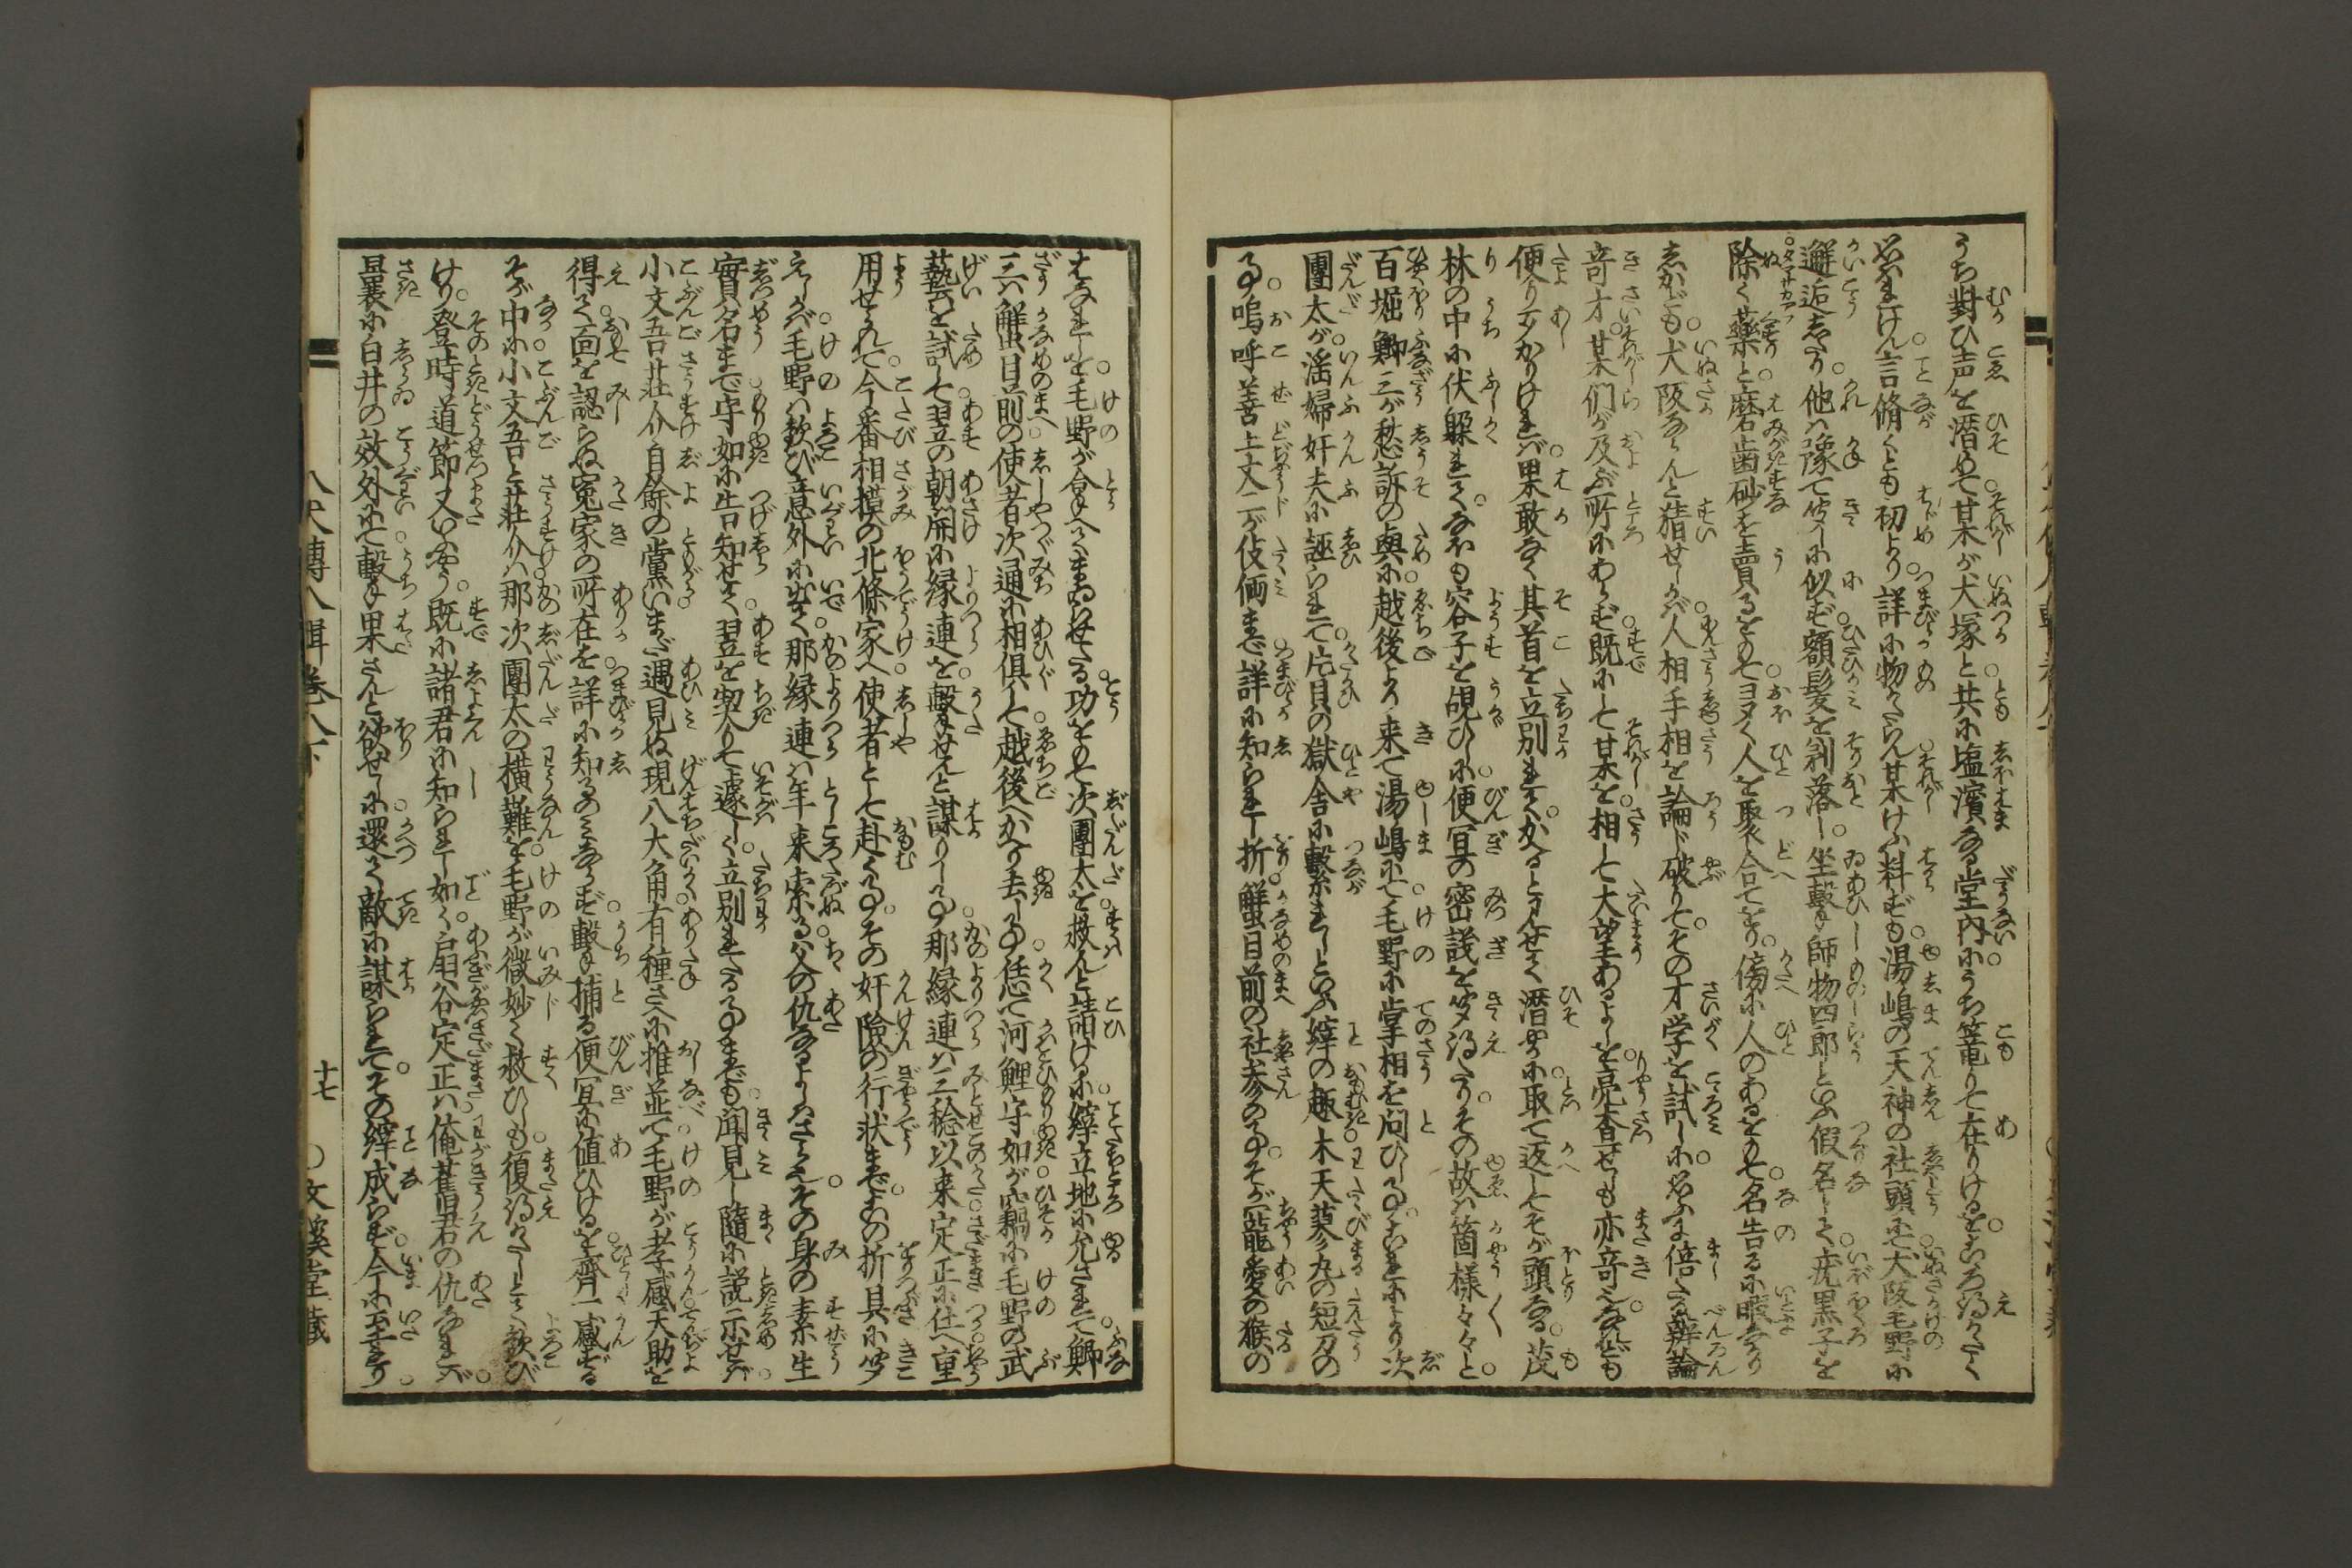 うち對ひ声を潜めて某が犬塚と共に塩濱なる堂内にうち篭りて在りけるをこゝろ得がたく
思れけん言脩くとも初より詳に物がたらん某けふ料ずも湯嶋の天神の社頭にて犬阪毛野に
邂逅しきり他ハ豫て似ず額髪を剃落し坐撃師物四郎といふ假名して疣黒子を
除く藥と磨歯砂を賣るをもてヨク人を聚合てをり傍に人のあるをもて名告るに暇なかり
しかども犬阪ならんと猜せしかバ人相手相を論じ破りてその才学を試しに思ふに倍たる辯論
竒才某們が及ぶ所にあらず既にして某を相して大望あるよしを亮査せしも亦竒也なれども
便りあしかりけれバ果敢なく其首を立別れてかへると見せて潜やかに取て返しそが頭なる茂
林の中に伏躱れてなほも容子を覘ひしに便冝の密談を聞得たりその故ハ箇様々々と
百堀鮒三が愁訴の與に越後より来て湯嶋にて毛野に掌相を问ひし事これにより次
團太が滛婦奸夫に誣られて片貝の獄舎に繋れしといふ縡の趣木天蓼丸の短刀の
事嗚呼善上丈二が伎倆まで詳に知られし折蟹目前の社参の事そが寵愛の猴の
事を毛野が合へてまゐらせたる功をもて次團太を救んと請けるに縡立地に允されて鮒
三ハ蟹目前の使者次通に相倶して越後へかへり去し事恁て河鯉守如が窃に毛野の武
藝を試して翌の朝開に縁連を撃せんと謀りし事那縁連ハ三稔以来定正に仕へ重
用せられて今番相模の北條家へ使者として赴く事その奸險の行状までこの折具に聞
えしかバ毛野ハ歓び意外に出て那縁連ハ年来索る父の仇なるよしさへその身の素生
實名まで守如に告知せて翌を契りて遽しく立別れたる事までも聞見し随に説示せバ
小文吾荘介自餘の黨いまだ遇見ぬ現八大角有種さへに推並て毛野が孝感天助を
得て面を認らぬ寃家の所在を詳に知るのみならず撃捕る便冝に値ひけるを齊一感ずる
そが中に小文吾と荘介ハ那次團太の横難を毛野が微妙く救ひしも復得がたしとて歓び
けり登時道節又いふやう既に諸君に知られし如く扇谷定正ハ俺舊君の仇なれバ
曩に白井の效外にて撃果さんと欲せしに還て敵に謀られてその縡成らず今に至れり
八犬傳八輯巻八下
十七
○文溪堂藏